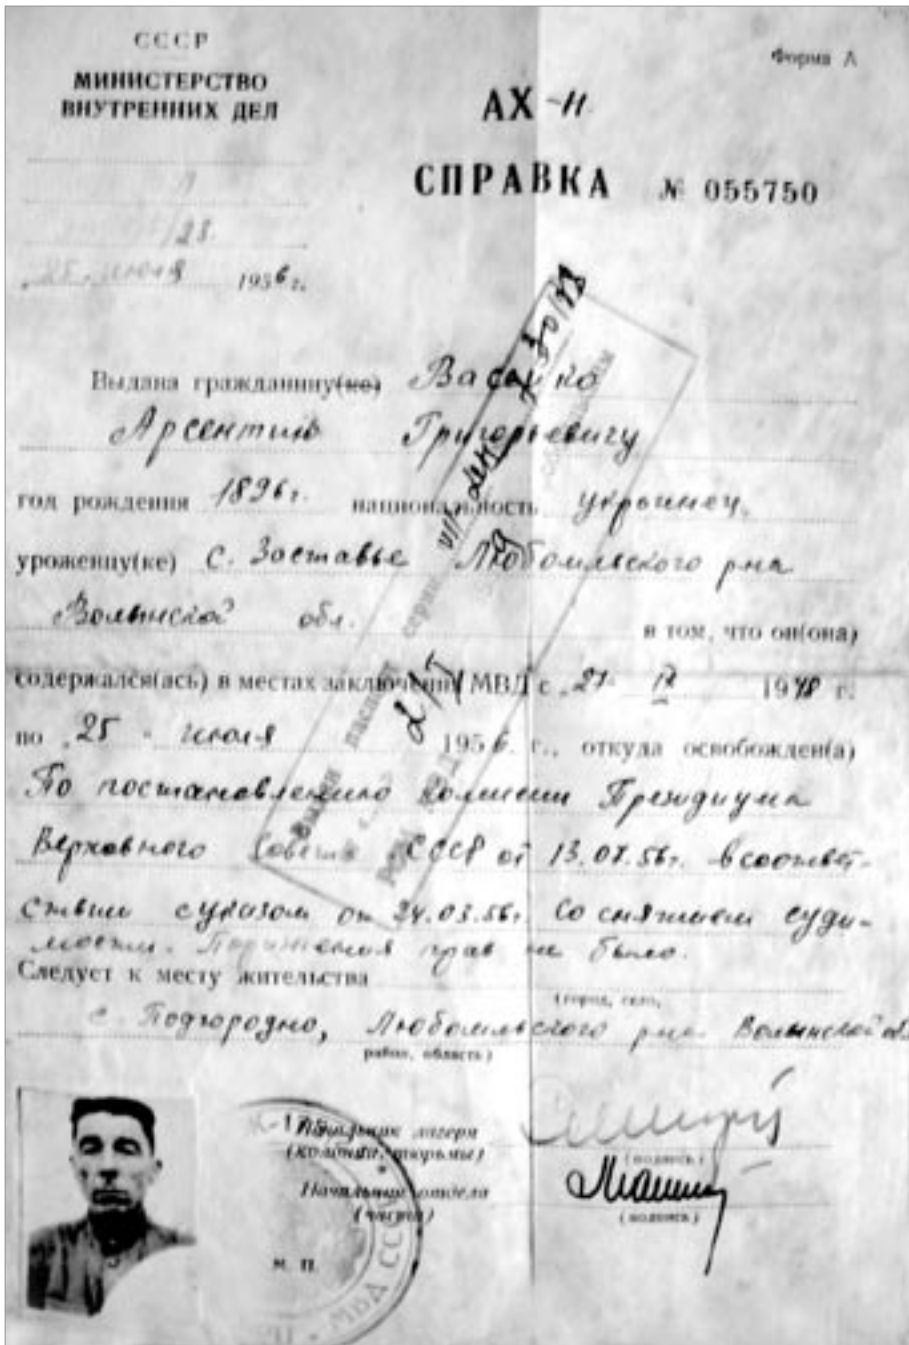 СССР
МИНИСТЕРСТВО
ВНУТРЕННИХ ДЕЛ
Форма А
АХ -11
СПРАВКА № 055750
/28.
„25„ июля 1956 г.
Выдана гражданину(ке) Васейко
Арсентию Григорьевичу
год рождения 1896 г. национальность украинец,
уроженцу(ке) с. Заставье Любомльского р-на
Волынской обл. в том, что он(она)
содержался(ась) в местах заключения МВД с „27„ IV 1948 г.
по „25„ июля 1956 г., откуда освобожден(а)
По постановлению Комиссии Президиума
Верховного Совета СССР от 13.07.56г. в соответ-
ствии с указом от 24.03.56г. Со снятием суди-
мости. Поражения прав не было.
Следует к месту жительства
(город, село,
с. Подгородно, Любомльского р-на Волынской обл.
район, область)
Выдан паспорт серии VII
РОМ МВД
Начальник лагеря
(колонии, тюрьмы)
(подпись)
Начальник отдела
(части)
(подпись)
М. П.
МВД СССР